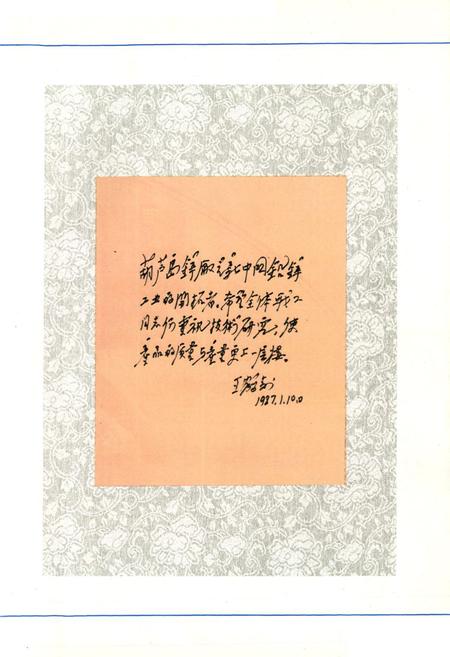 葫芦岛锌厂是中国铅锌
工业的开拓者，希望全体职工
同志们重视技术研究，使
产品的质量与产量更上一层楼。
王
1987.1.10.